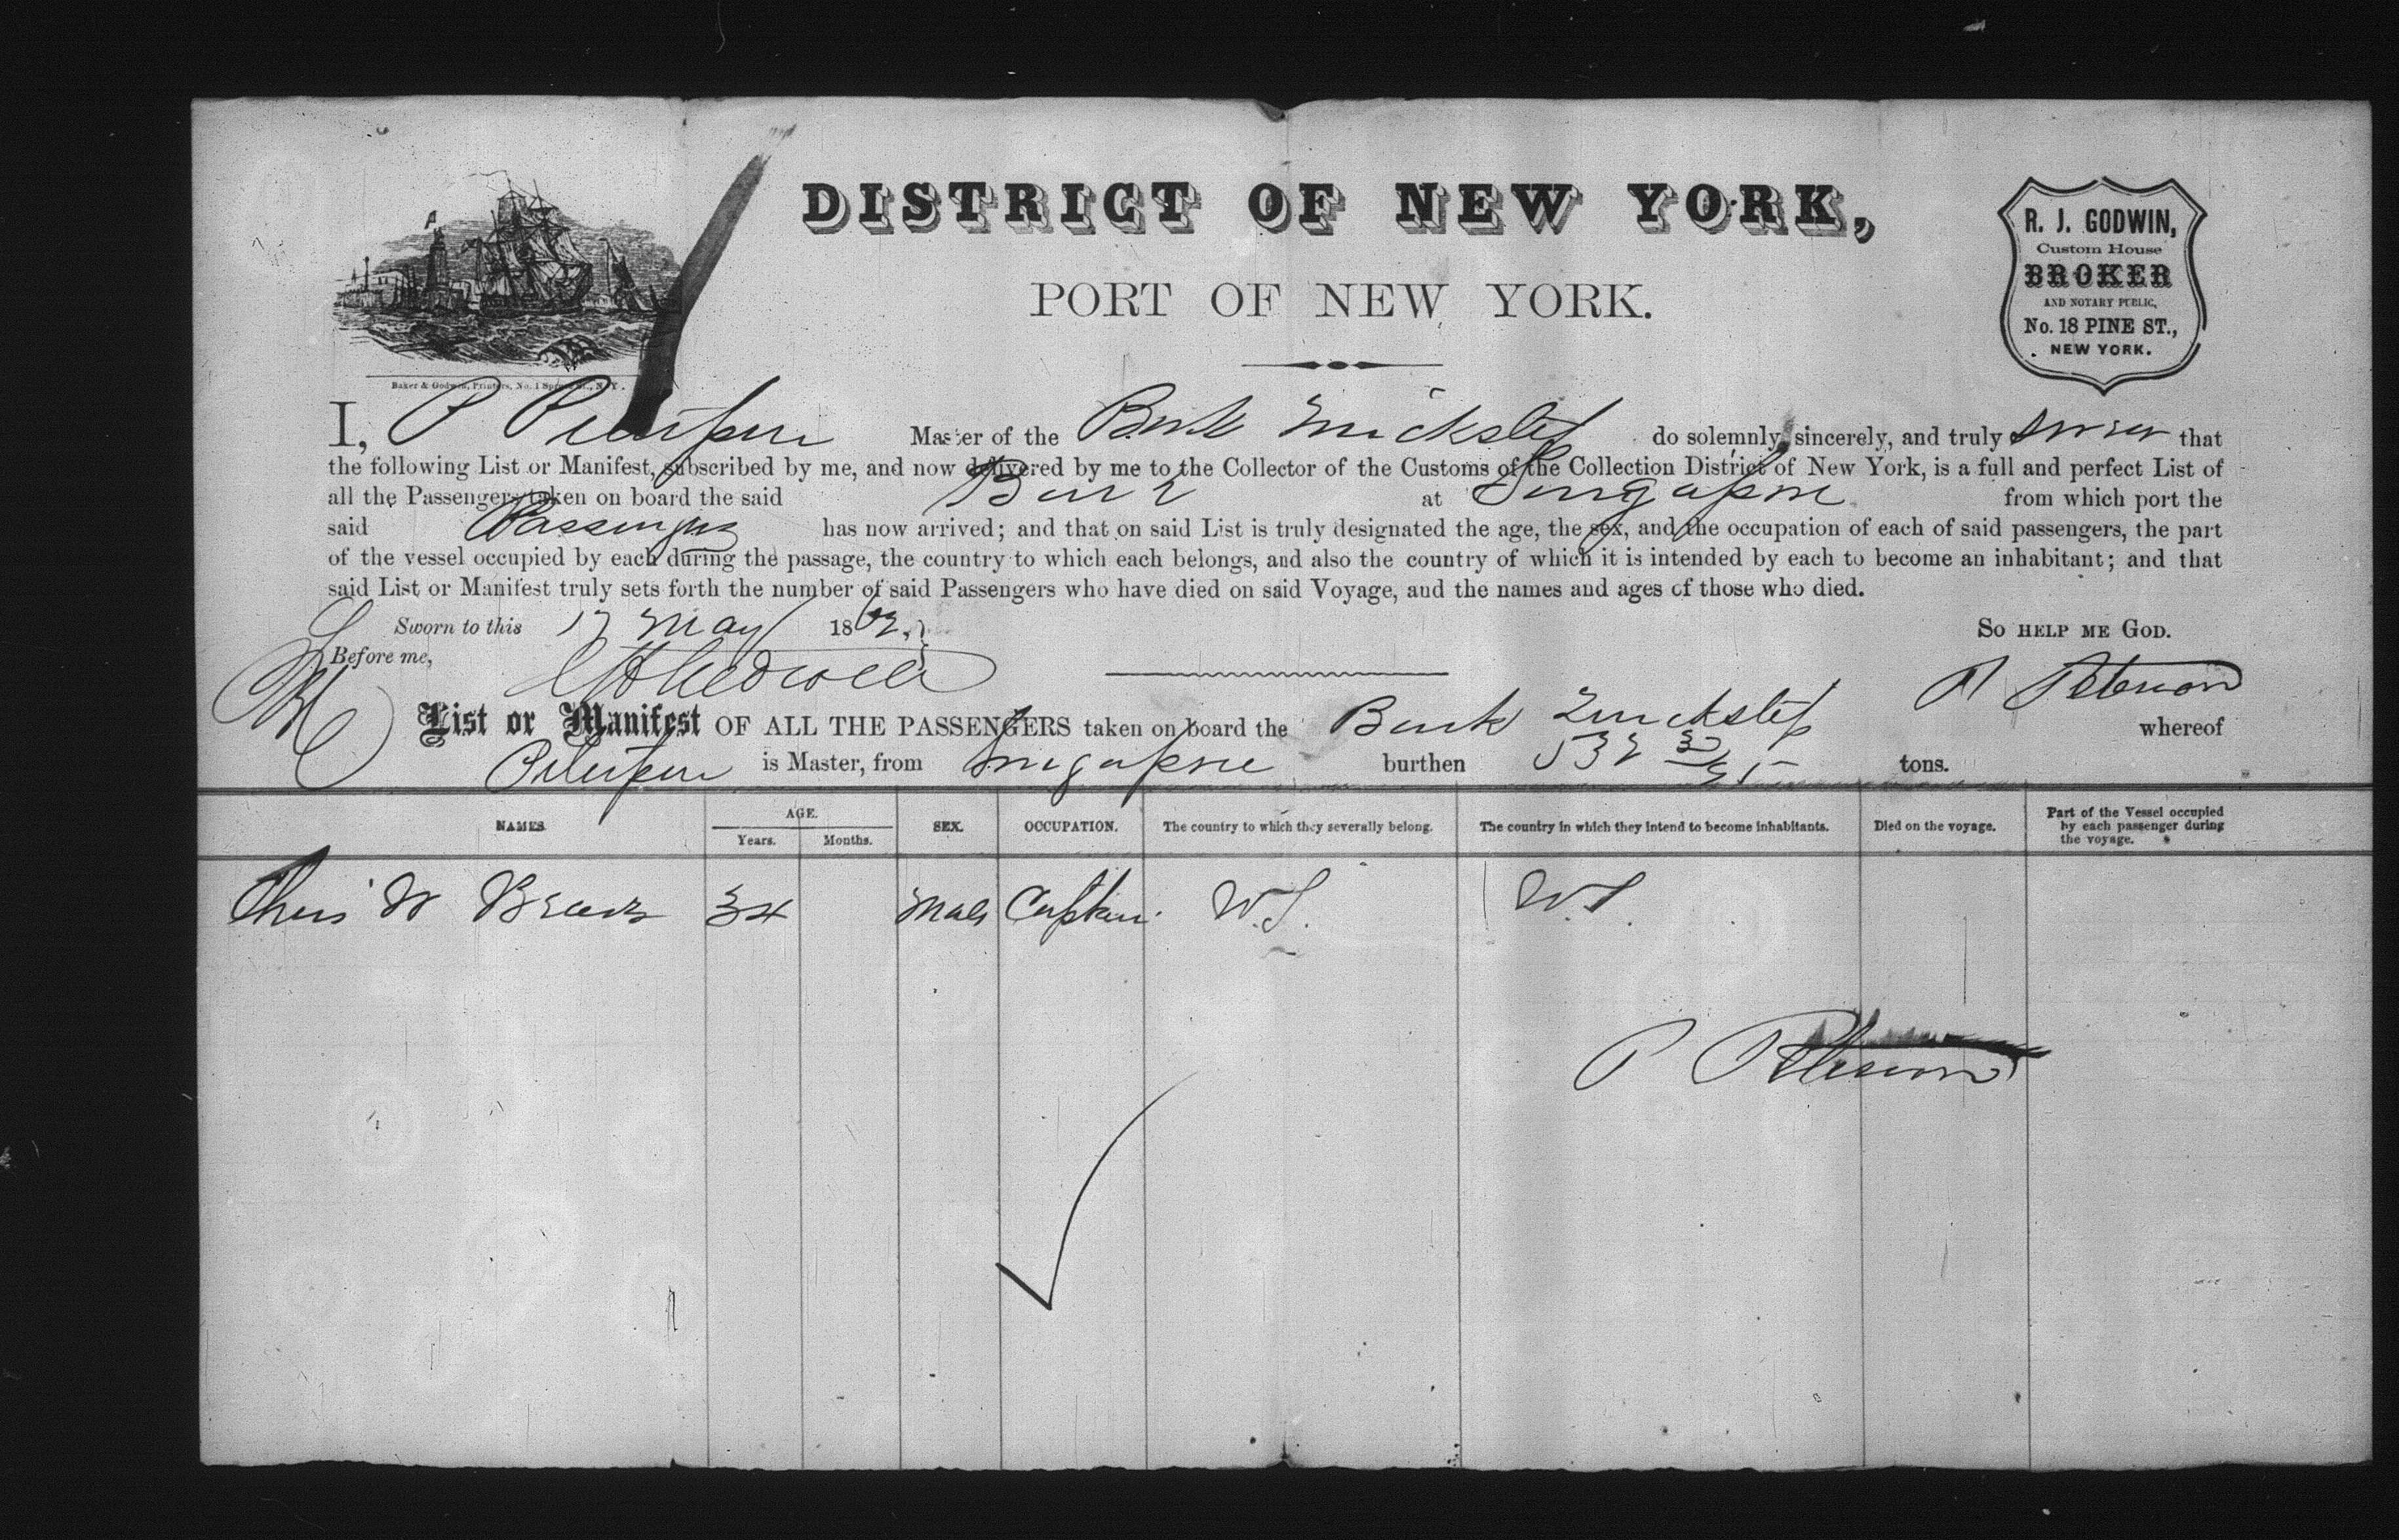 DISTRICT OF NEW YORK,
PORT OF NEW YORK.
R. J. GODWIN,
Custom House
BROKER
AND NOTARY PUBLIC,
No. 18 PINE ST.,
NEW YORK.
Baker & Godwin, Printers, No. 1 Spruce St., N. Y.
I, P Master of the Bark Quickstep do solemnly, sincerely, and truly swear that
the following List or Manifest, subscribed by me, and now delivered by me to the Collector of the Customs of the Collection District of New York, is a full and perfect List of
all the Passengers taken on board the said Bark at Singapore from which port the
said Passenger has now arrived; and that on said List is truly designated the age, the sex, and the occupation of each of said passengers, the part
of the vessel occupied by each during the passage, the country to which each belongs, and also the country of which it is intended by each to become an inhabitant; and that
said List or Manifest truly sets forth the number of said Passengers who have died on said Voyage, and the names and ages of those who died.
Sworn to this 17 May 186 So help me God.
Before me,
P Peterson
List or Manifest OF ALL THE PASSENGERS taken on board the Bark Quickstep whereof
is Master, from Singapore burthen 532 tons.
NAMES. AGE. SEX. OCCUPATION. The country to which they severally belong. The country in which they intend to become inhabitants. Died on the voyage. Part of the Vessel occupied by each passenger during the voyage.
Years. Months.
W 34 Male Captain
P Peterson